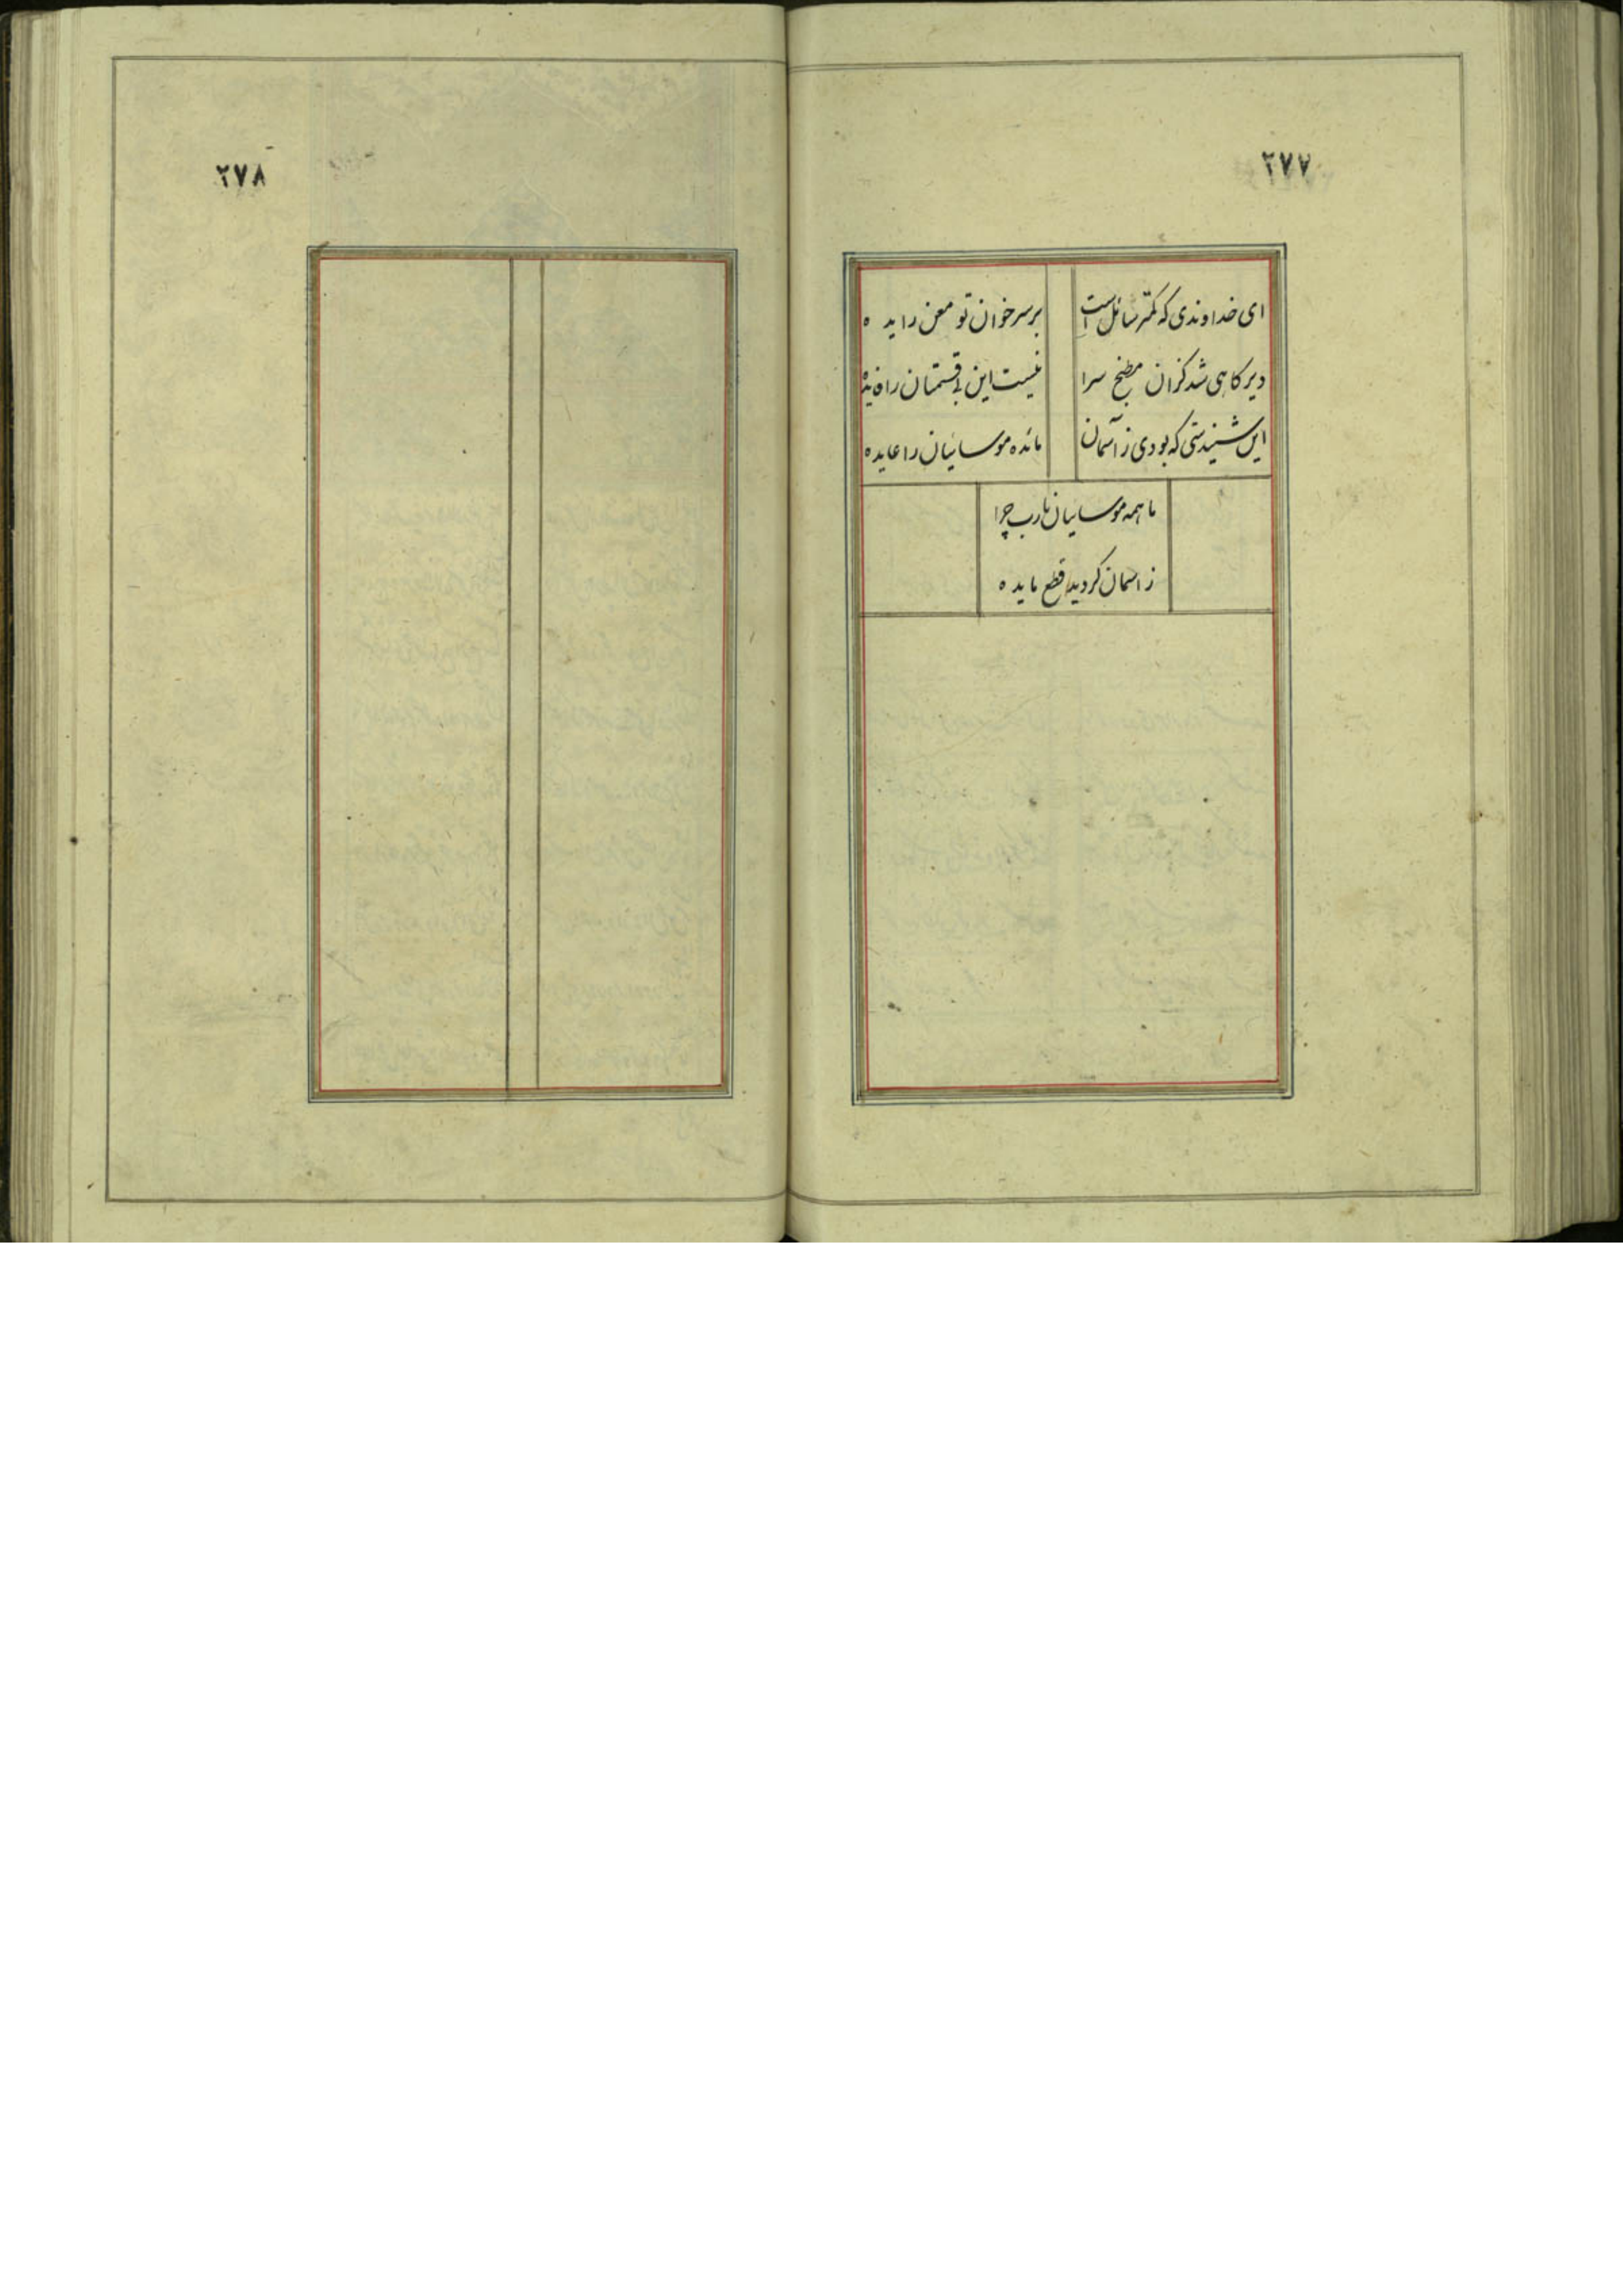 ٢٧٧
ای خداوندی که کمتر سائل است
بر سر خوان تو معن زایده
دیر کاهی شد کزان مطبخ سرا
نیست این بی قسمتان را فایده
این شنیدستی که بودی ز آسمان
مائده موسائیان را عایده
ما همه موسائیان یارب چرا
ز اسمان کردید قطع مایده
٢٧٨